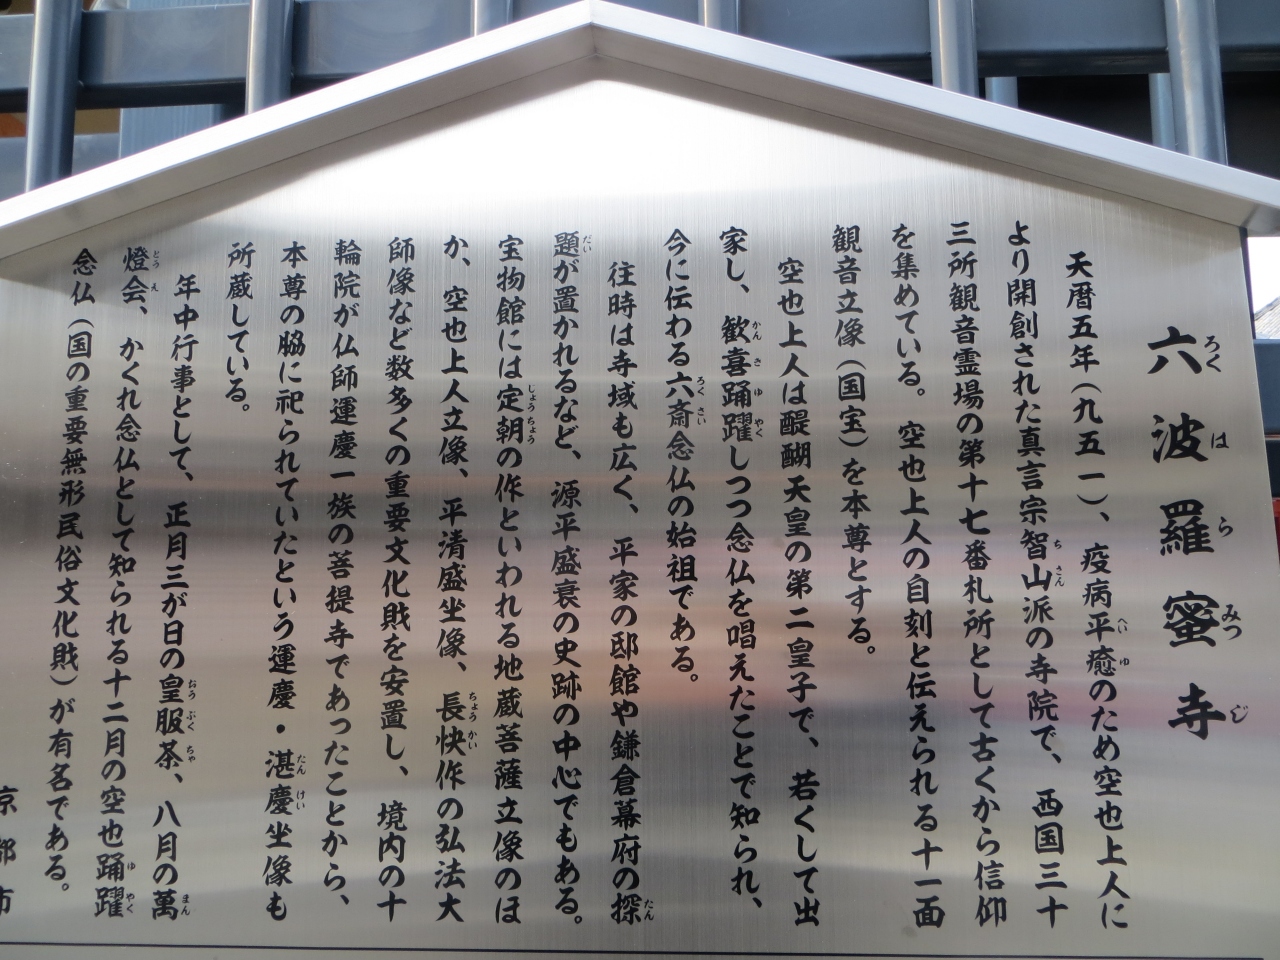 六波羅蜜寺
天暦五年（九五一）、疫病平癒のため空也上人に
より開創された真言宗智山派の寺院で、西国三十
三所観音霊場の第十七番札所として古くから信仰
を集めている。空也上人の自刻と伝えられる十一面
観音立像（国宝）を本尊とする。
空也上人は醍醐天皇の第二皇子で、若くして出
家し、歓喜踊躍しつつ念仏を唱えたことで知られ、
今に伝わる六斎念仏の始祖である。
往時は寺域も広く、平家の邸館や鎌倉幕府の探
題が置かれるなど、源平盛衰の史跡の中心でもある。
宝物館には定朝の作といわれる地蔵菩薩立像のほ
か、空也上人立像、平清盛坐像、長快作の弘法大
師像など数多くの重要文化財を安置し、境内の十
輪院が仏師運慶一族の菩提寺であったことから、
本尊の脇に祀られていたという運慶・湛慶坐像も
所蔵している。
年中行事として、正月三が日の皇服茶、八月の萬
燈会、かくれ念仏として知られる十二月の空也踊躍
念仏（国の重要無形民俗文化財）が有名である。
京都市